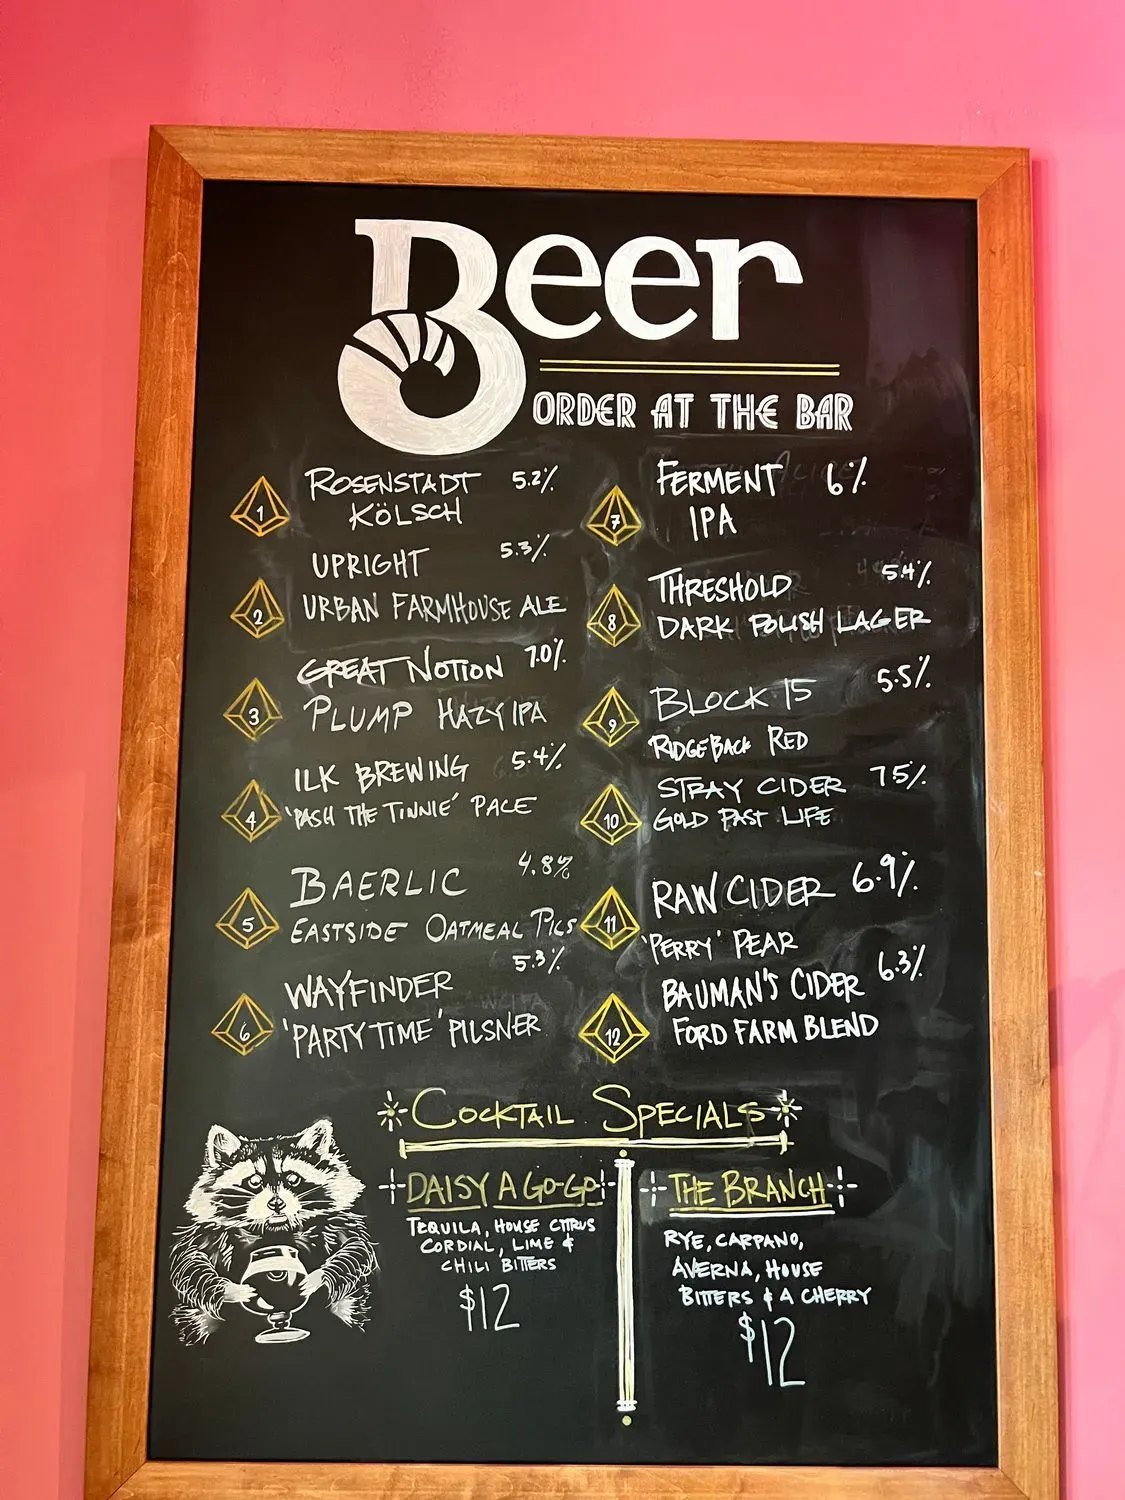 Beer
ORDER AT THE BAR
1
ROSENSTADT 5.2%
KÖLSCH
2
UPRIGHT 5.3%
URBAN FARMHOUSE ALE
3
GREAT NOTION 7.0%
PLUMP HAZY IPA
4
ILK BREWING 5.4%
'PASH THE TINNIE' PALE
5
BAERLIC 4.8%
EASTSIDE OATMEAL PILS
6
WAYFINDER 5.3%
'PARTY TIME' PILSNER
7
FERMENT 6%
IPA
8
THRESHOLD 5.4%
DARK POLISH LAGER
9
BLOCK 15 5.5%
RIDGEBACK RED
10
STRAY CIDER 7.5%
GOLD PAST LIFE
11
RAW CIDER 6.9%
'PERRY' PEAR
12
BAUMAN'S CIDER 6.3%
FORD FARM BLEND
COCKTAIL SPECIALS
DAISY A GO-GO
TEQUILA, HOUSE CITRUS
CORDIAL, LIME &
CHILI BITTERS
$12
THE BRANCH
RYE, CARPANO,
AVERNA, HOUSE
BITTERS & A CHERRY
$12